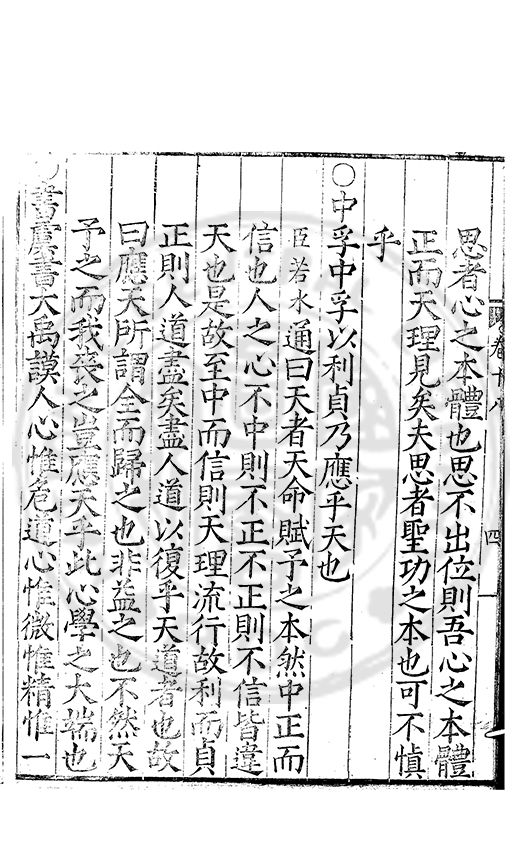 思者心之本體也思不出位則吾心之本體
正而天理見矣夫思者聖功之本也可不慎
乎
○中孚中孚以利貞乃應乎天也
臣若水通曰天者天命賦予之本然中正而
信也人之心不中則不正不正則不信皆違
天也是故至中而信則天理流行故利而貞
正則人道盡矣盡人道以復乎天道者也故
曰應天所謂全而歸之也非益之也不然天
予之而我喪之豈應天乎此心學之大端也
○書虞書大禹謨人心惟危道心惟微惟精惟一
四